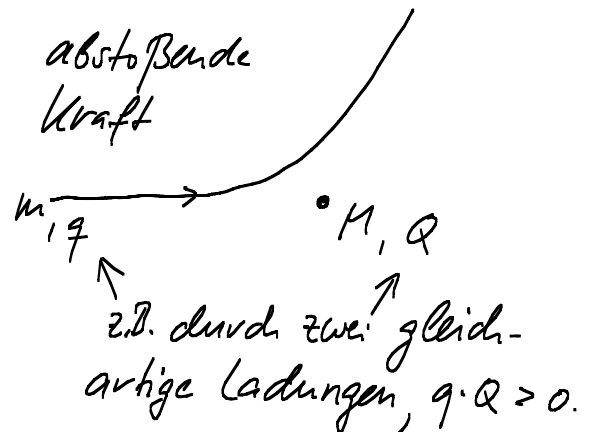 abstoßende
Kraft
m, q
M, Q
z.B. durch zwei gleich-
artige Ladungen, q·Q > 0.